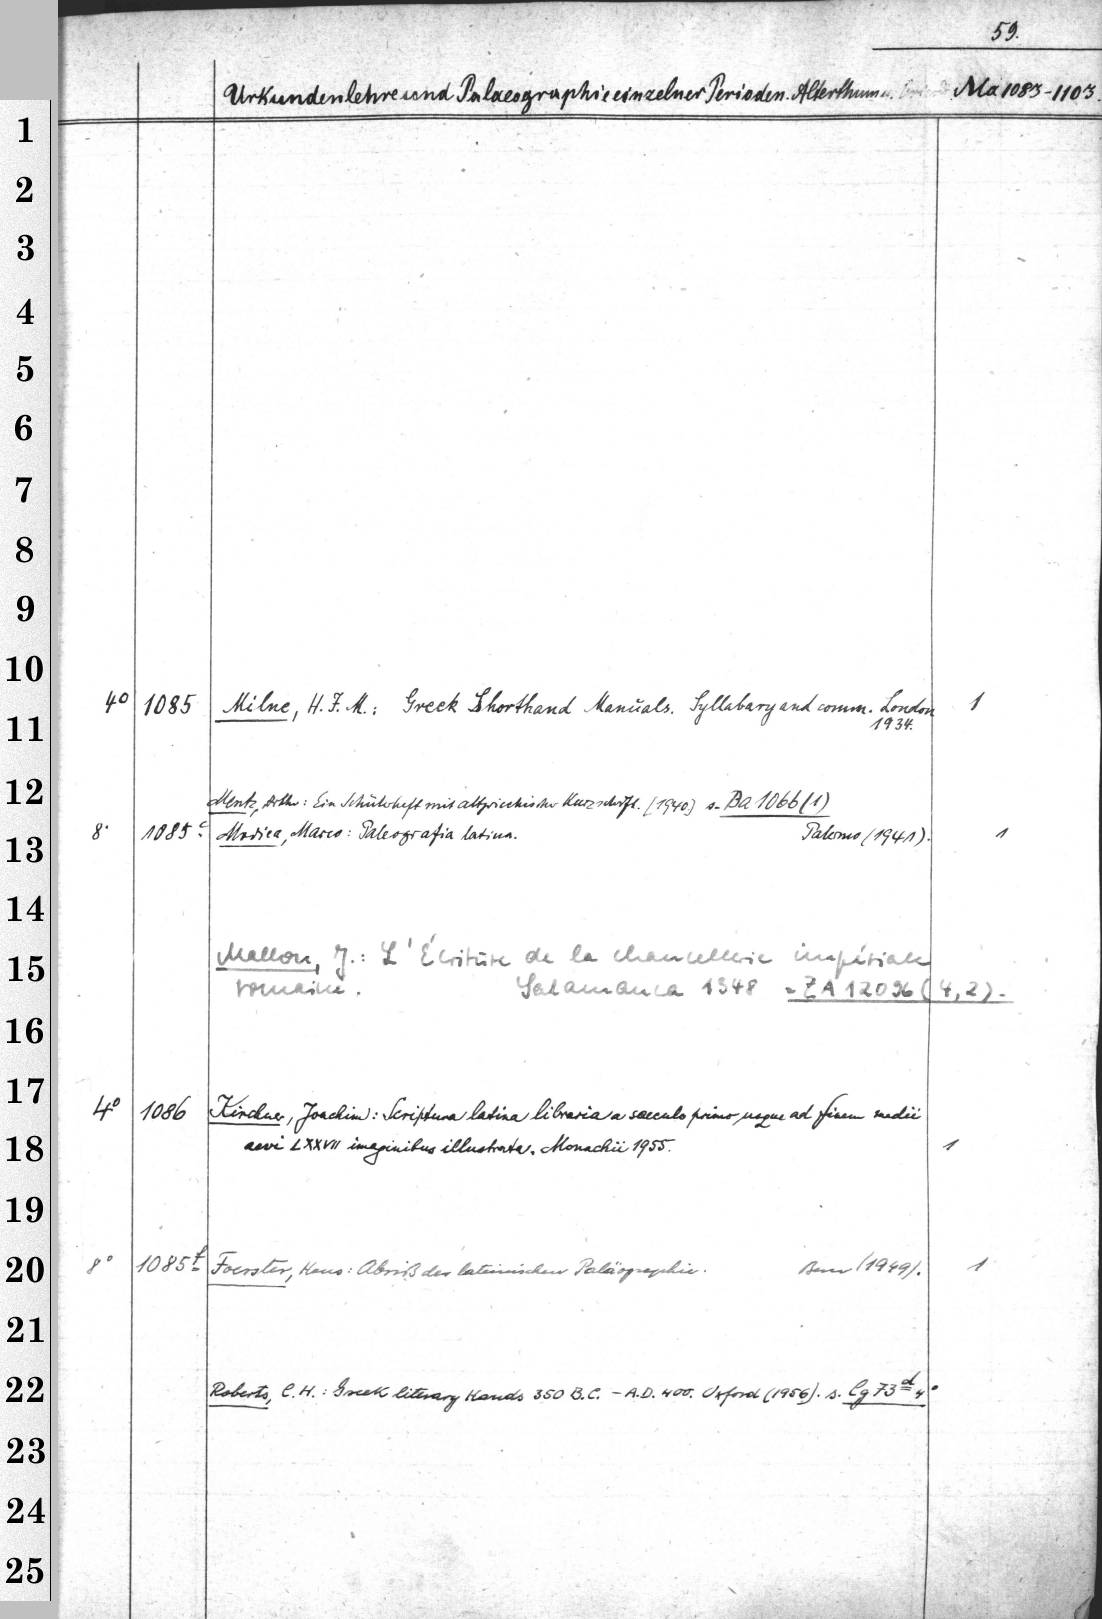 59.
Urkundenlehre und Palaeographie einzelner Perioden. Alterthum u. Ma 1083-1103.
1
2
3
4
5
6
7
8
9
10
4° 1085 Milne, H. J. M.: Greek Shorthand Manuals. Syllabary and comm. London 1
11
1934.
12
Mentz, Arthur: Ein Schülerheft mit altgriechischer Kurzschrift. (1940) s. Ba 1066(1)
8° 1085 c Modica, Marco: Paleografia latina. Palermo (1941). 1
13
14
Mallon, J.: L'Écriture de la chancellerie impériale
15
romaine. Salamanca 1948 = ZA 12096 (4,2).
16
17
4° 1086 Kirchner, Joachim: Scriptura latina libraria a saeculo primo usque ad finem medii
18
aevi LXXVII imaginibus illustrata. Monachii 1955. 1
19
20
8° 1085 f Foerster, Hans: Abriß der lateinischen Paläographie. Bern (1949). 1
21
22
Roberts, C. H.: Greek literary Hands 350 B.C. - A.D. 400. Oxford (1956). s. Cg 73 d 4°
23
24
25